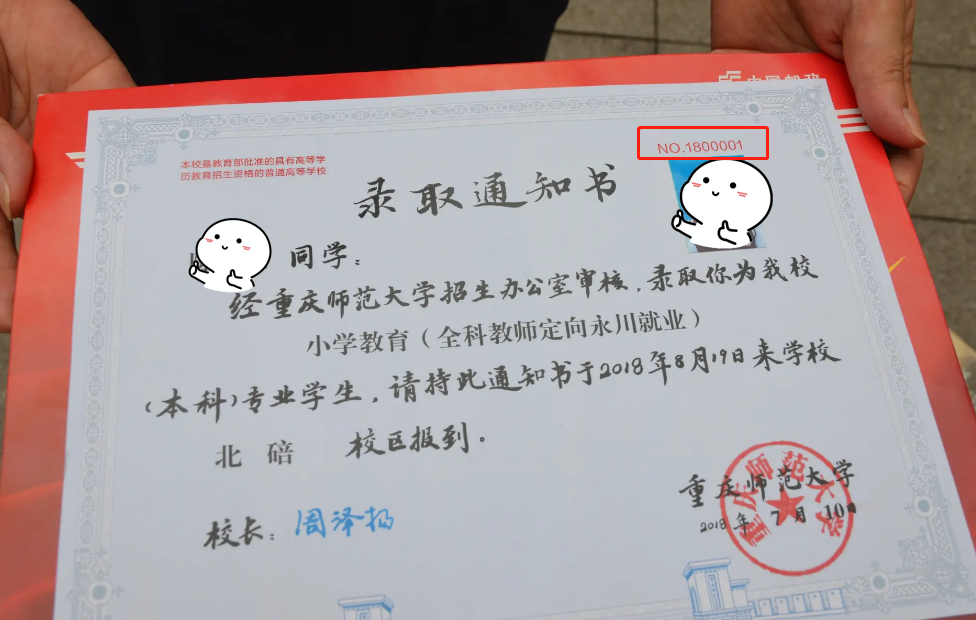 中国邮政
本校是教育部批准的具有高等学
历教育招生资格的普通高等学校
NO.1800001
录取通知书
同学：
经重庆师范大学招生办公室审核，录取你为我校
小学教育（全科教师定向永川就业）
（本科）专业学生，请持此通知书于2018年8月19日来学校
北 碚 校区报到。
校长：周泽扬
重庆师范大学
2018年7月10日
重庆师范大学